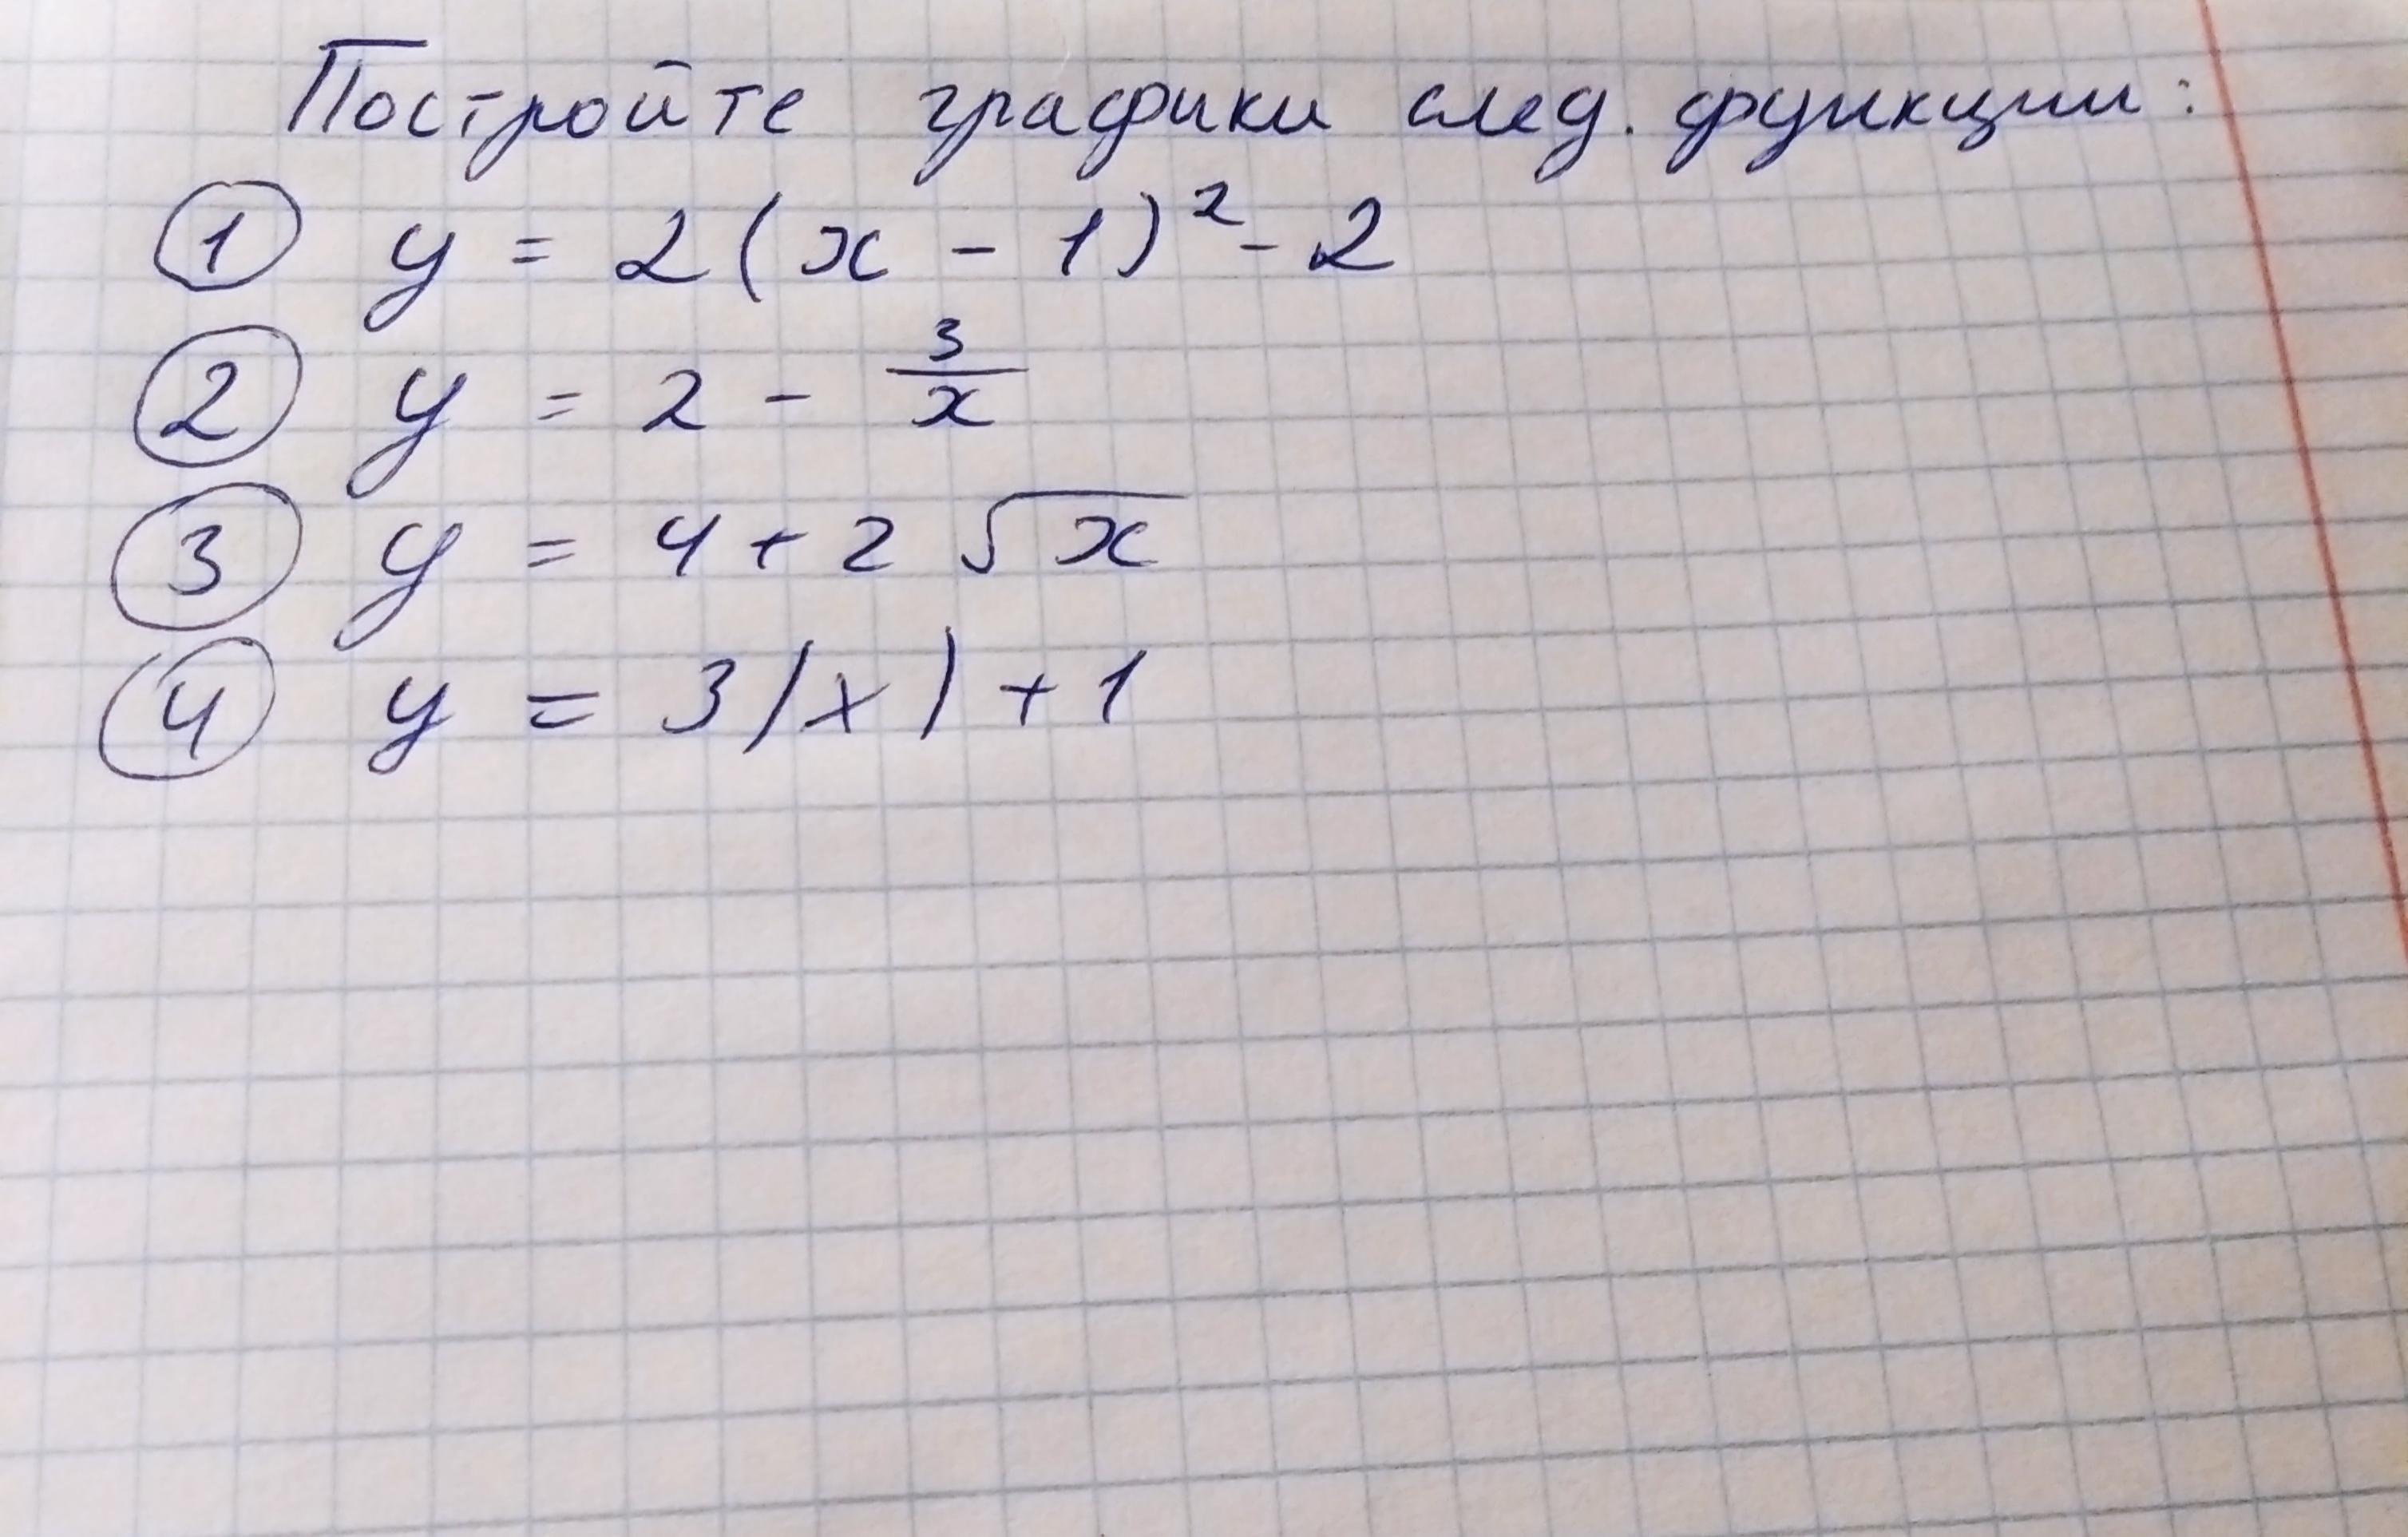 Постройте графики след. функции:
① y = 2(x - 1)² - 2
② y = 2 - 3/x
③ y = 4 + 2√x
④ y = 3|x| + 1